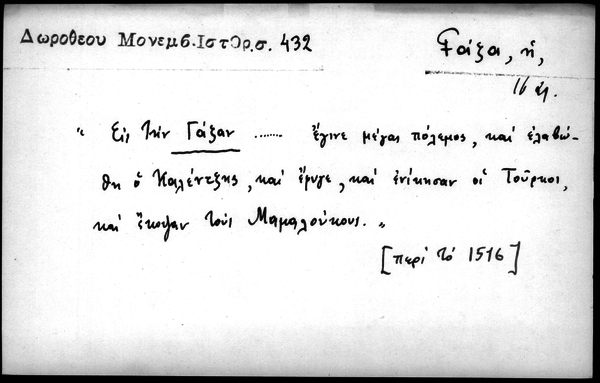 Δωροθεου Μονεμβ. Ιστορ. σ. 432
Γάξα, ἡ,
16 αἰ.
" Εἰς τὴν Γάξαν ........ ἔγινε μέγας πόλεμος, καὶ ἐλαβώ-
θη ὁ Καλέντζης, καὶ ἔφυγε, καὶ ἐνίκησαν οἱ Τοῦρκοι,
καὶ ἔκοψαν τοὺς Μαμαλούκους. "
[περὶ τὸ 1516]